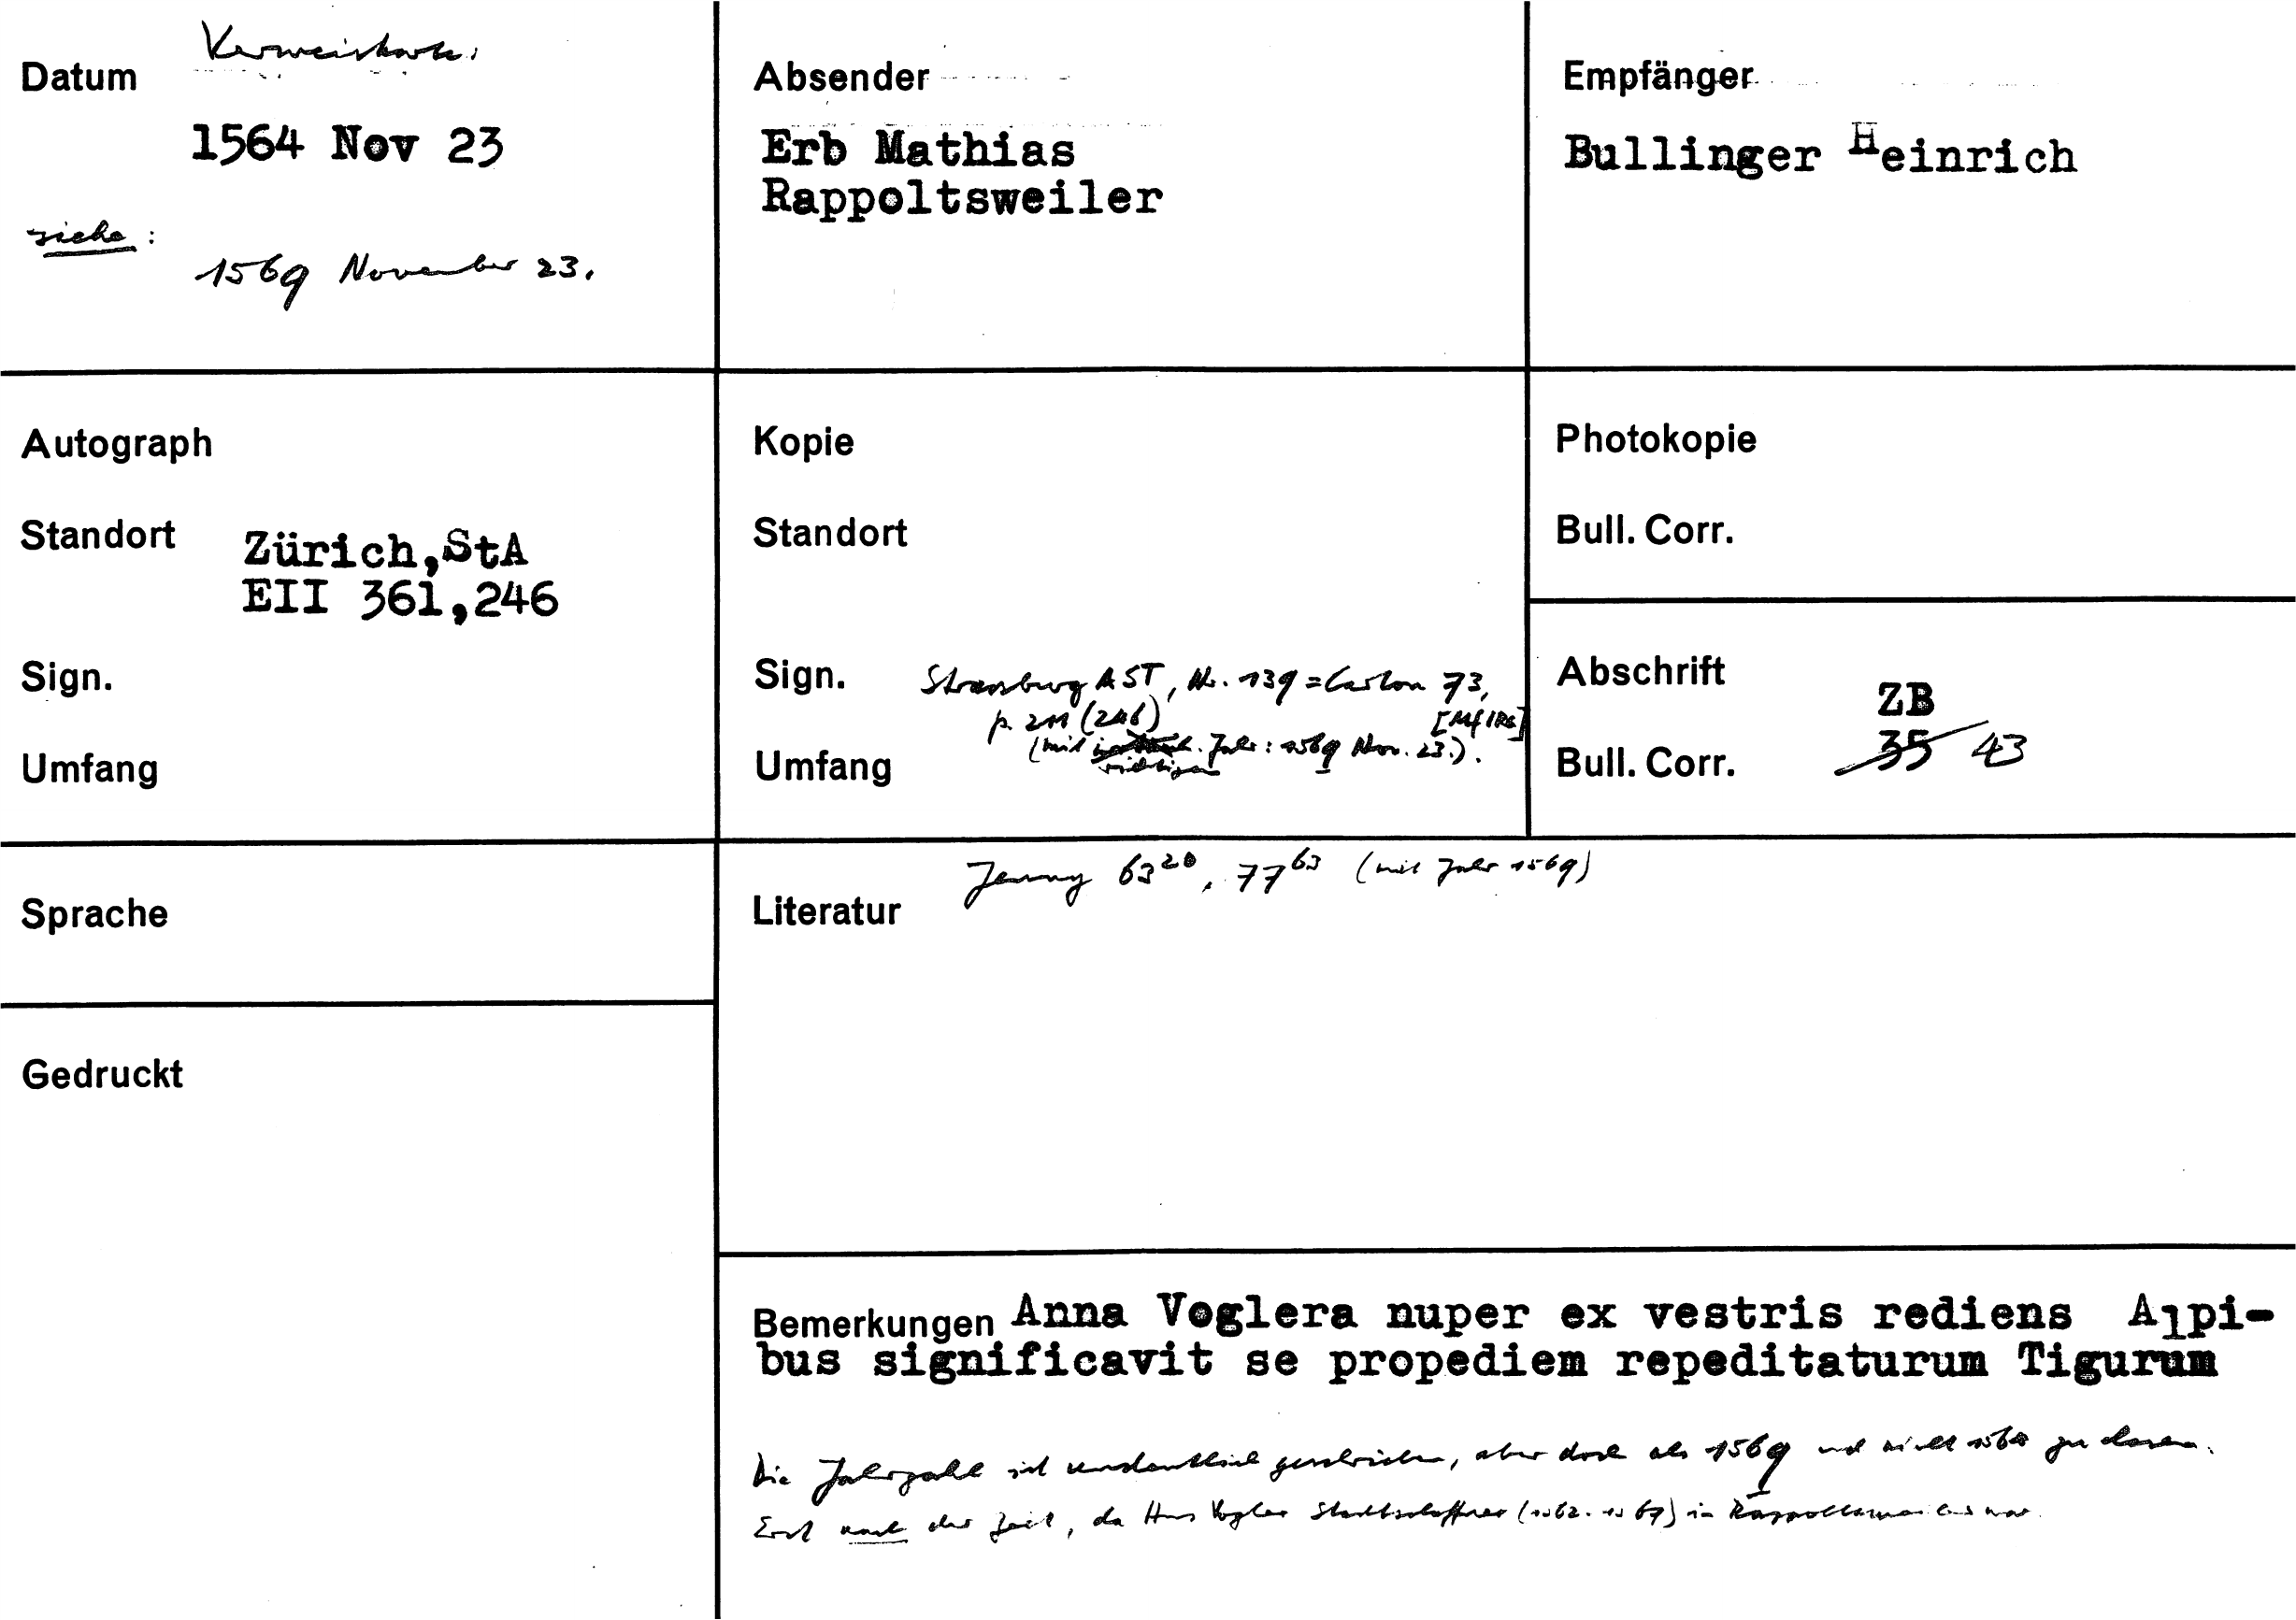 Verweiskarte.
Datum
1564 Nov 23
siehe:
1569 November 23.
Absender
Erb Mathias
Rappoltsweiler
Empfänger
Bullinger Heinrich
Autograph
Standort
Zürich,StA
EII 361,246
Sign.
Umfang
Kopie
Standort
Sign. Strassburg AST, Nr. 139 = Carton 73,
p. 211 (246)
(mit richtigem Jahr: 1569 Nov. 23.).
Umfang
Photokopie
Bull. Corr.
Abschrift
ZB
Bull. Corr. 35 43
Sprache
Gedruckt
Literatur Jenny 63 20, 77 63 (mit Jahr 1569)
Bemerkungen Anna Voglera nuper ex vestris rediens Alpi-
bus significavit se propediem repeditaturum Tigurum
Die Jahrzahl ist undeutlich geschrieben, aber doch als 1569 und nicht 1564 zu lesen.
Erst nach der Zeit, da Hans Vogler Stadtschaffner (1562-1567) in Rappoltsweiler war.